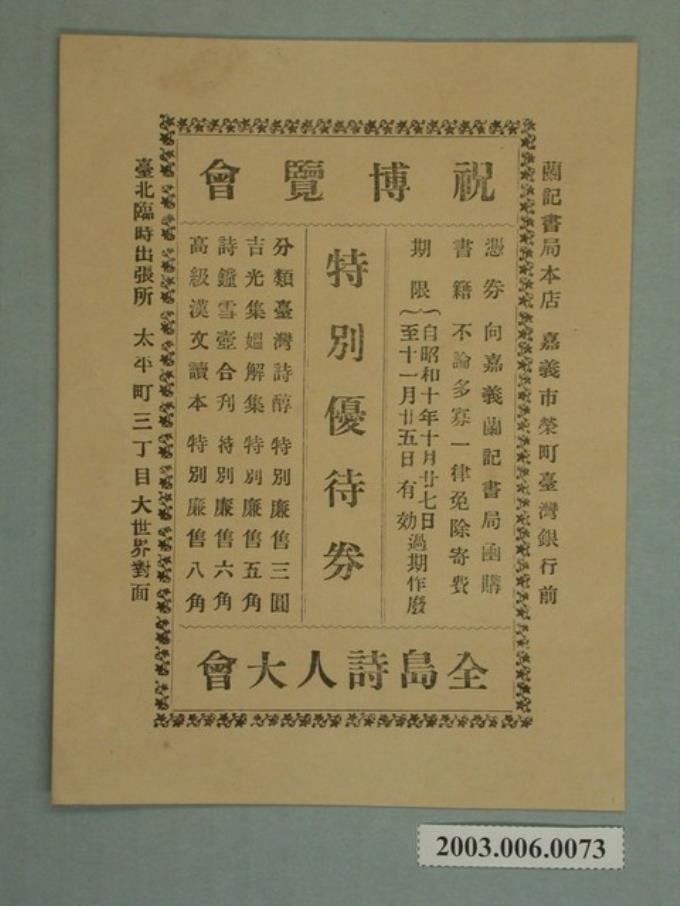 蘭記書局本店 嘉義市榮町臺灣銀行前
祝博覽會
憑券向嘉義蘭記書局函購
書籍不論多寡一律免除寄費
期限 自昭和十年十月廿七日
至十一月廿五日 有効過期作廢
特別優待券
分類臺灣詩醇 特別廉售三圓
吉光集媼解集 特別廉售五角
詩鐘雪壺合刋 特別廉售六角
高級漢文讀本 特別廉售八角
全島詩人大會
臺北臨時出張所 太平町三丁目大世界對面
2003.006.0073